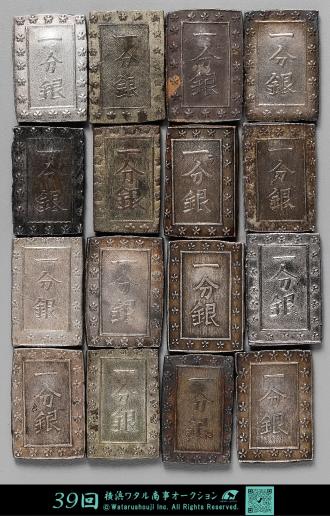 一分銀
一分銀
一分銀
一分銀
一分銀
一分銀
一分銀
一分銀
一分銀
一分銀
一分銀
一分銀
一分銀
一分銀
一分銀
一分銀
39回 横浜ワタル商事オークション
©Watarushouji Inc. All Rights Reserved.